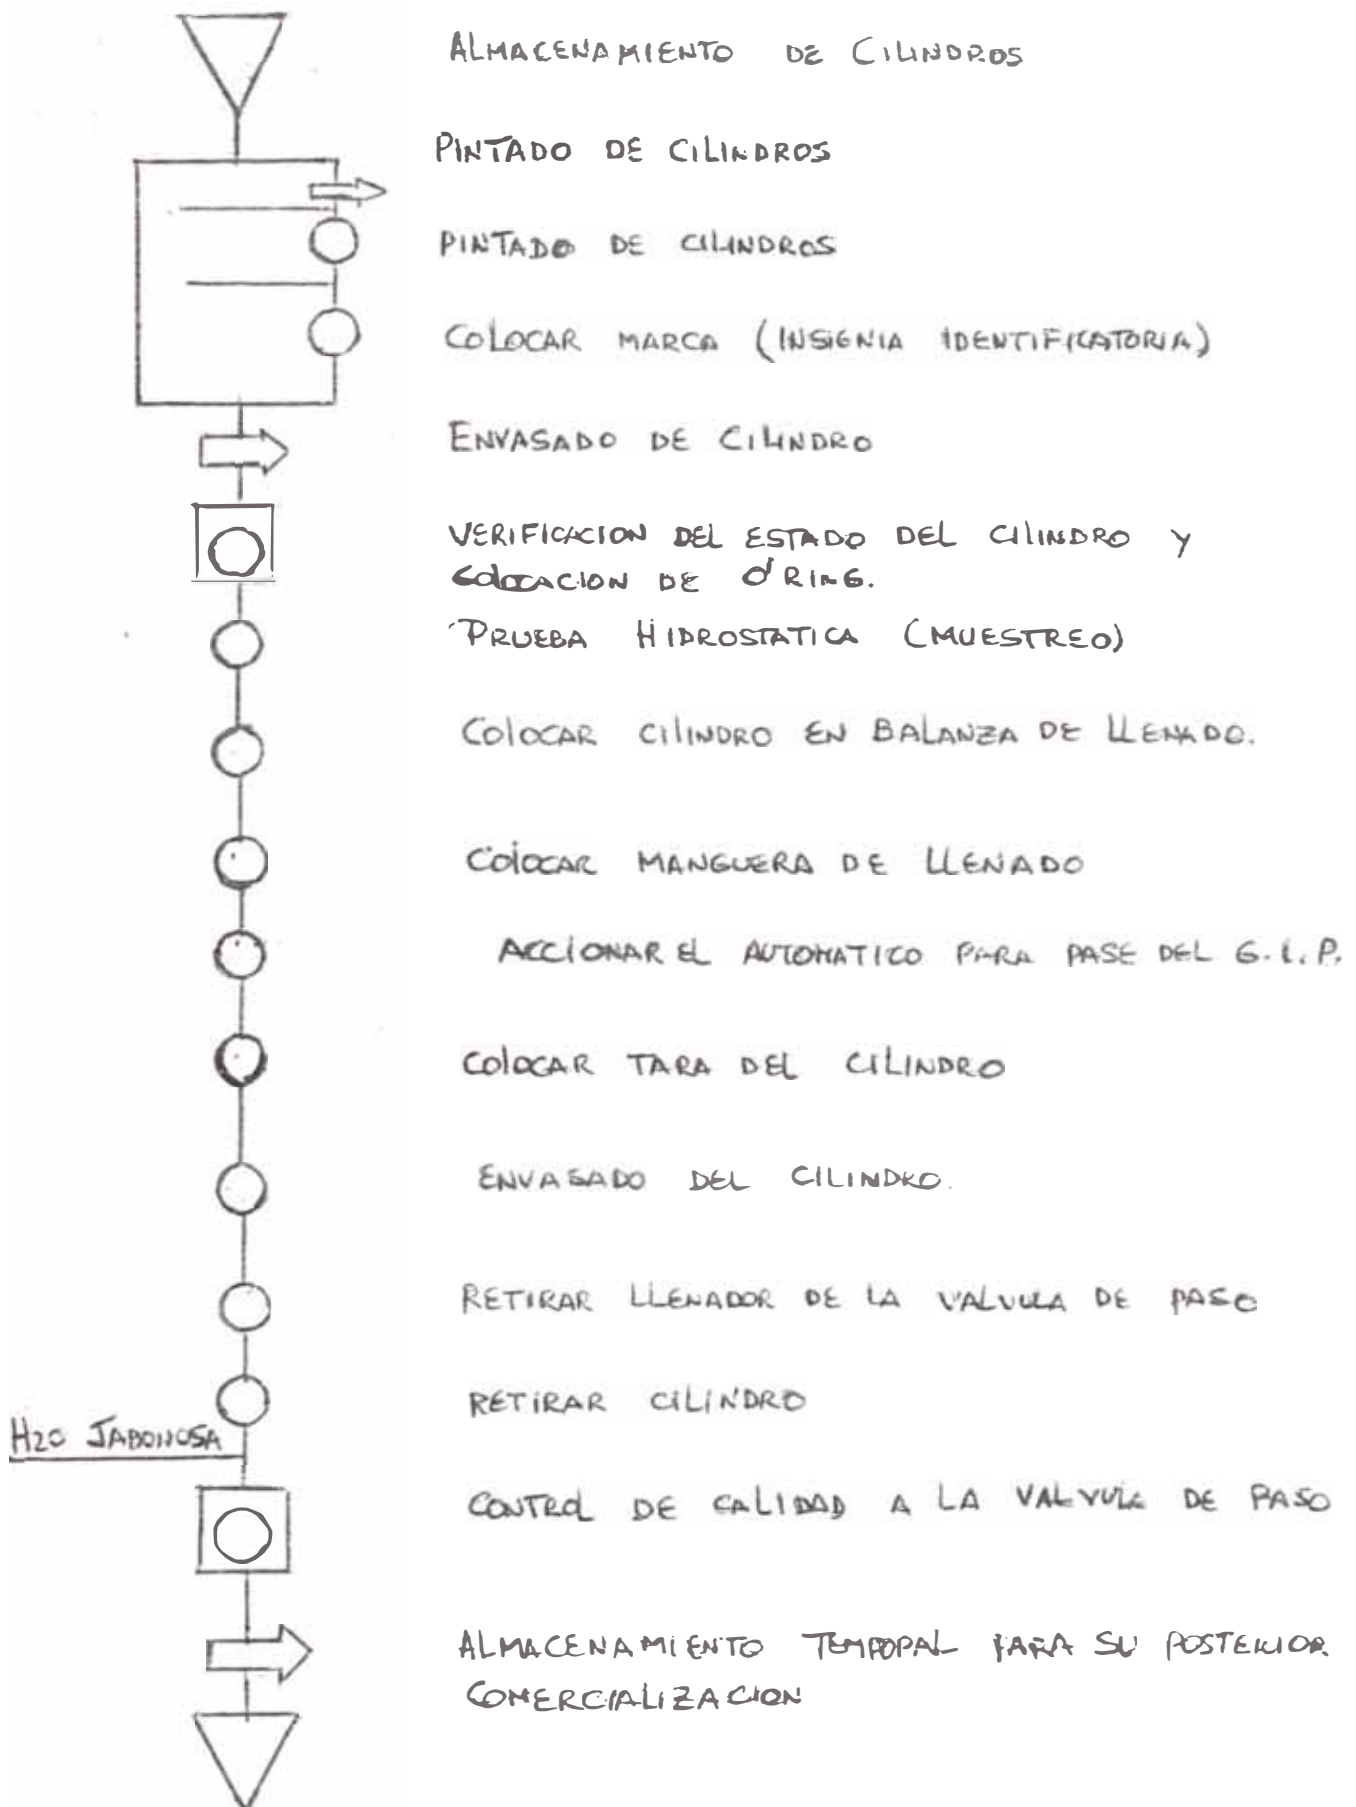 ALMACENAMIENTO DE CILINDROS
PINTADO DE CILINDROS
PINTADO DE CILINDROS
COLOCAR MARCA (INSIGNIA IDENTIFICATORIA)
ENVASADO DE CILINDRO
VERIFICACION DEL ESTADO DEL CILINDRO Y
COLOCACION DE O'RING.
PRUEBA HIDROSTATICA (MUESTREO)
COLOCAR CILINDRO EN BALANZA DE LLENADO.
COLOCAR MANGUERA DE LLENADO
ACCIONAR EL AUTOMATICO PARA PASE DEL G.L.P.
COLOCAR TARA DEL CILINDRO
ENVASADO DEL CILINDRO.
RETIRAR LLENADOR DE LA VALVULA DE PASO
RETIRAR CILINDRO
H2O JABONOSA
CONTROL DE CALIDAD A LA VALVULA DE PASO
ALMACENAMIENTO TEMPOPAL PARA SU POSTERIOR
COMERCIALIZACION